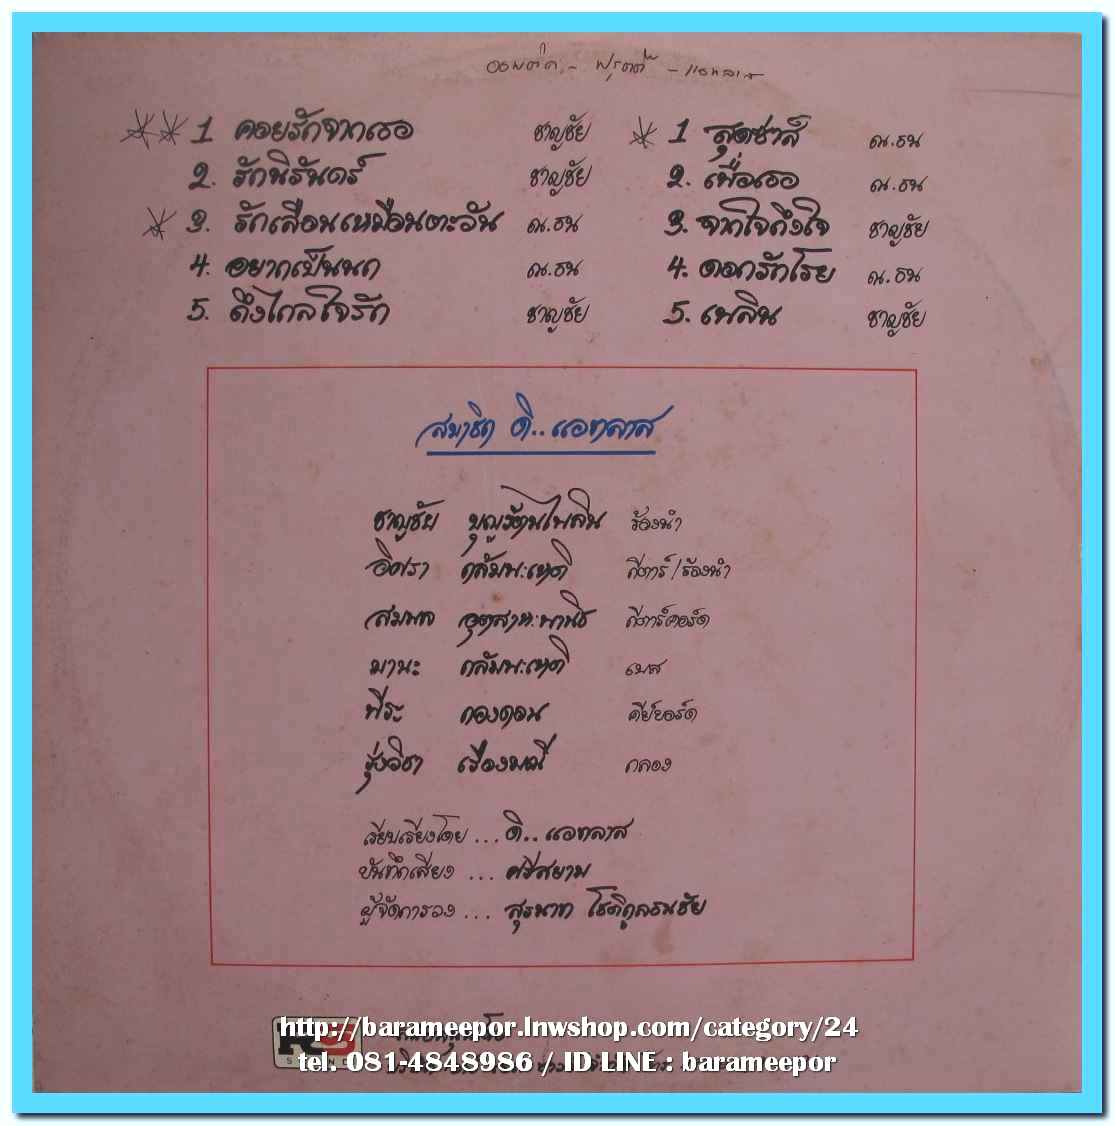 1 คอยรักจากเธอ ชาญชัย
2. รักนิรันดร์ ชาญชัย
3. รักเลือนเหมือนตะวัน ณ.ธน
4. อยากเป็นนก ณ.ธน
5. ถึงไกลใจรัก ชาญชัย
1 สุดซาส์ ณ.ธน
2. เพื่อเธอ ณ.ธน
3. จากใจถึงใจ ชาญชัย
4. ดอกรักโรย ณ.ธน
5. เพลิน ชาญชัย
สมาชิก ดิ..แอทลาส
ชาญชัย บุญรัตนไพลิน ร้องนำ
อิศรา กลัมพะเหติ กีตาร์/ร้องนำ
สมพล อุตสาหะพานิช กีตาร์คอร์ด
มานะ กลัมพะเหติ เบส
พีระ กองดอน คีย์บอร์ด
รุ่งวิชา เรืองมณี กลอง
เรียบเรียงโดย ... ดิ..แอทลาส
บันทึกเสียง ... ศรีสยาม
ผู้จัดการวง ... สุรนาท โชติกูลธนชัย
RS SOUND
http://barameepor.lnwshop.com/category/24
tel. 081-4848986 / ID LINE : barameepor